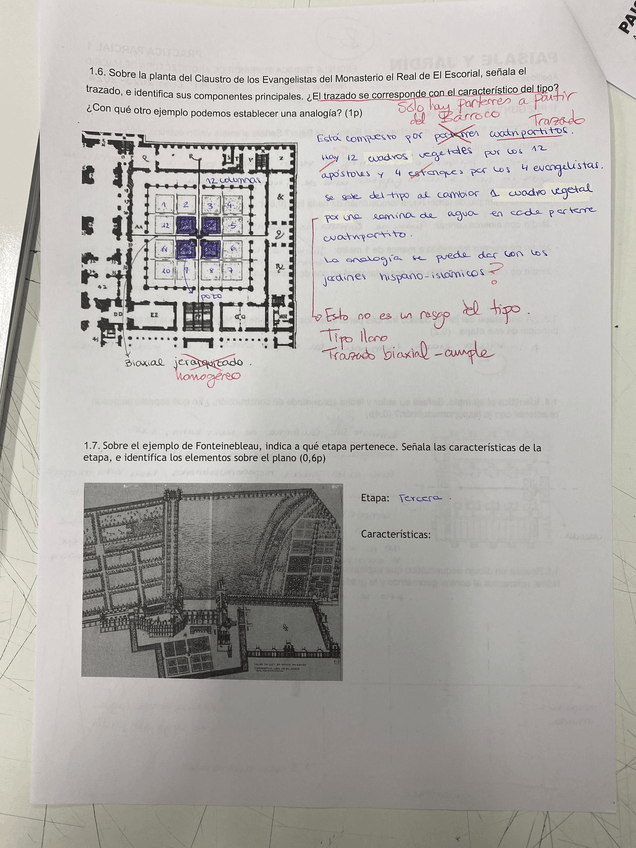 PAIS
1.6. Sobre la planta del Claustro de los Evangelistas del Monasterio el Real de El Escorial, señala el
trazado, e identifica sus componentes principales. ¿El trazado se corresponde con el característico del tipo?
¿Con qué otro ejemplo podemos establecer una analogía? (1p)
Sólo hay parterres a partir
del Barroco
Trazado
Está compuesto por parterres cuatripartitos.
Hay 12 cuadros vegetales por los 12
apóstoles y 4 estanques por los 4 evangelistas.
Se sale del tipo al cambiar 1 cuadro vegetal
por una lámina de agua en cada parterre
cuatripartito.
La analogía se puede dar con los
jardines hispano-islámicos ?
Esto no es un rasgo del tipo.
Tipo llano
Trazado biaxial - simple
12 columnas
1 2 3 4
12 5
11 6
10 9 8 7
pozo
Biaxial jerarquizado.
homogéneo
1.7. Sobre el ejemplo de Fonteinebleau, indica a qué etapa pertenece. Señala las características de la
etapa, e identifica los elementos sobre el plano (0,6p)
Etapa: Tercera.
Características: